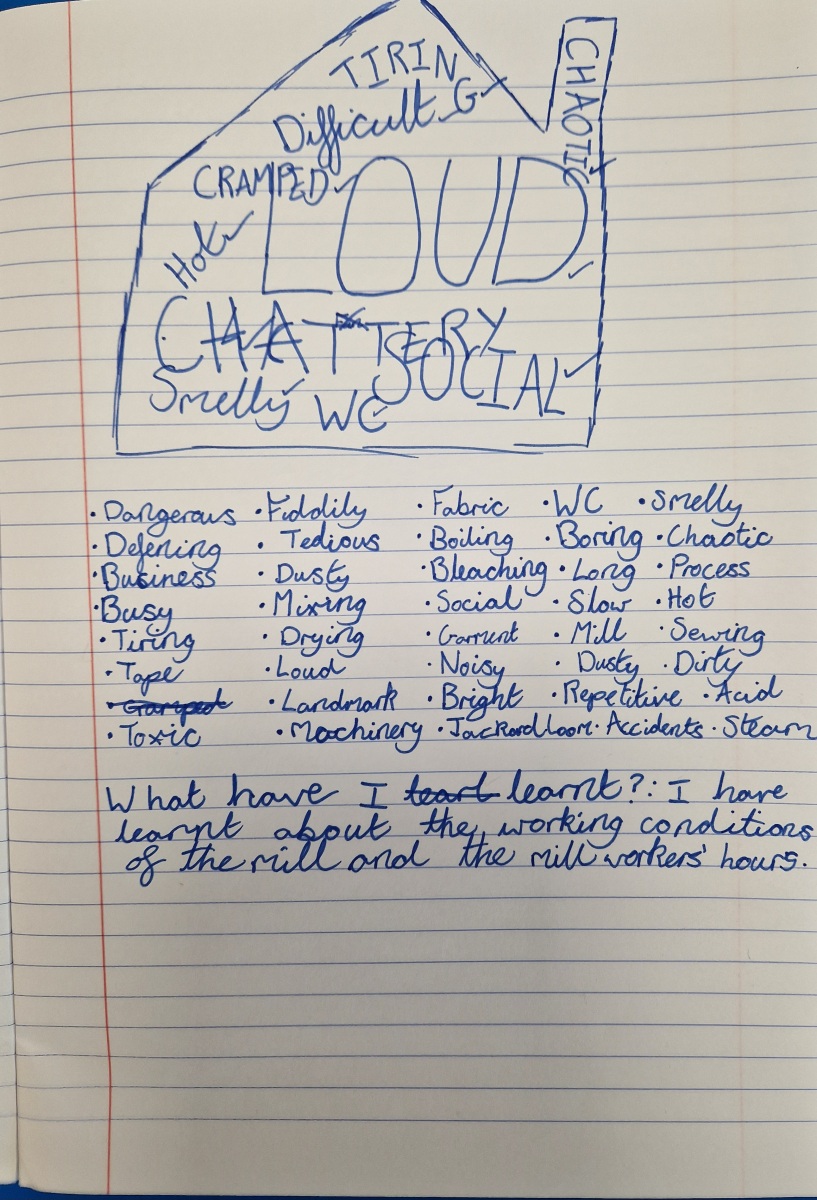 TIRING
Difficult
CHAOTIC
CRAMPED
LOUD
Hot
CHATTERY
SOCIAL
Smelly WC
· Dangerous · Fiddlily · Fabric · WC · Smelly
· Defening · Tedious · Boiling · Boring · Chaotic
· Business · Dusty · Bleaching · Long · Process
· Busy · Mixing · Social · Slow · Hot
· Tiring · Drying · Garment · Mill · Sewing
· Tape · Loud · Noisy · Dusty · Dirty
· Landmark · Bright · Repetitive · Acid
· Toxic · Machinery · JacKard loom · Accidents · Steam
What have I learnt?: I have
learnt about the working conditions
of the mill and the mill workers' hours.